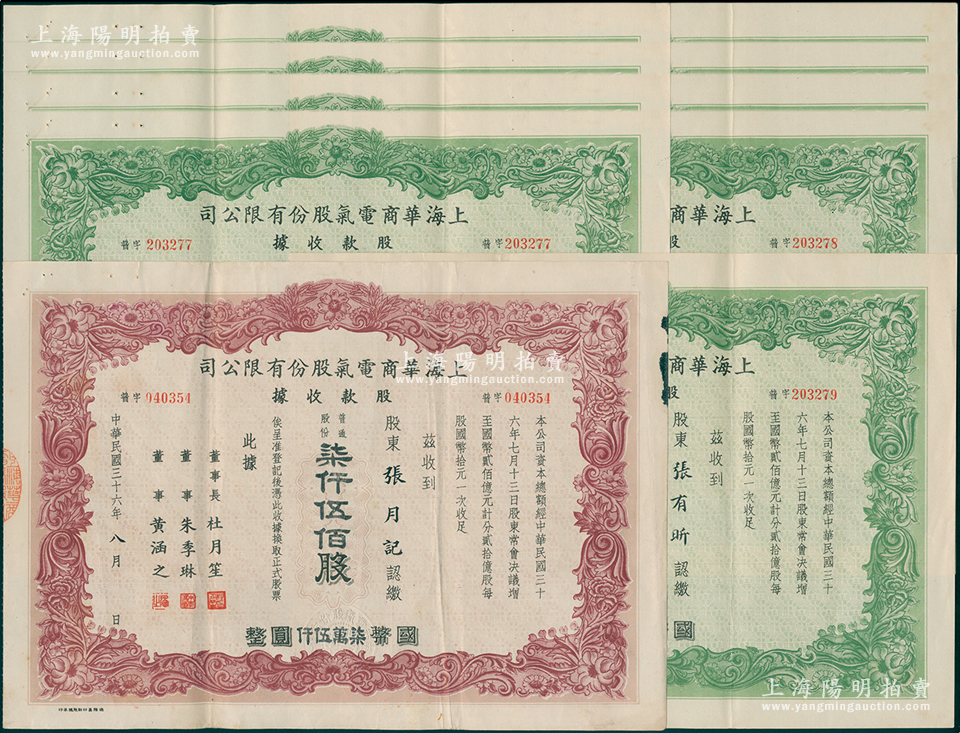 上海陽明拍賣
www.yangmingauction.com
上海華商電氣股份有限公司
股款收據
普字 203277
普字 203277
上海華商
股
普字 203278
上海華商電氣股份有限公司
股款收據
普字 040354
普字 040354
本公司資本總額經中華民國三十
六年七月十三日股東常會決議增
至國幣貳佰億元計分貳拾億股每
股國幣拾元一次收足
茲收到
股東 張月記 認繳
普通股份 柒仟伍佰股
國幣柒萬伍仟圓整
俟呈准登記後憑此收據換取正式股票
此據
董事長 杜月笙
董事 朱季琳
董事 黃涵之
中華民國三十六年八月 日
上海陽明拍賣
www.yangmingauction.com
上海華商
股
普字 203279
本公司資本總額經中華民國三十
六年七月十三日股東常會決議增
至國幣貳佰億元計分貳拾億股每
股國幣拾元一次收足
茲收到
股東 張有昕 認繳
國
上海陽明拍賣
www.yangmingauction.com